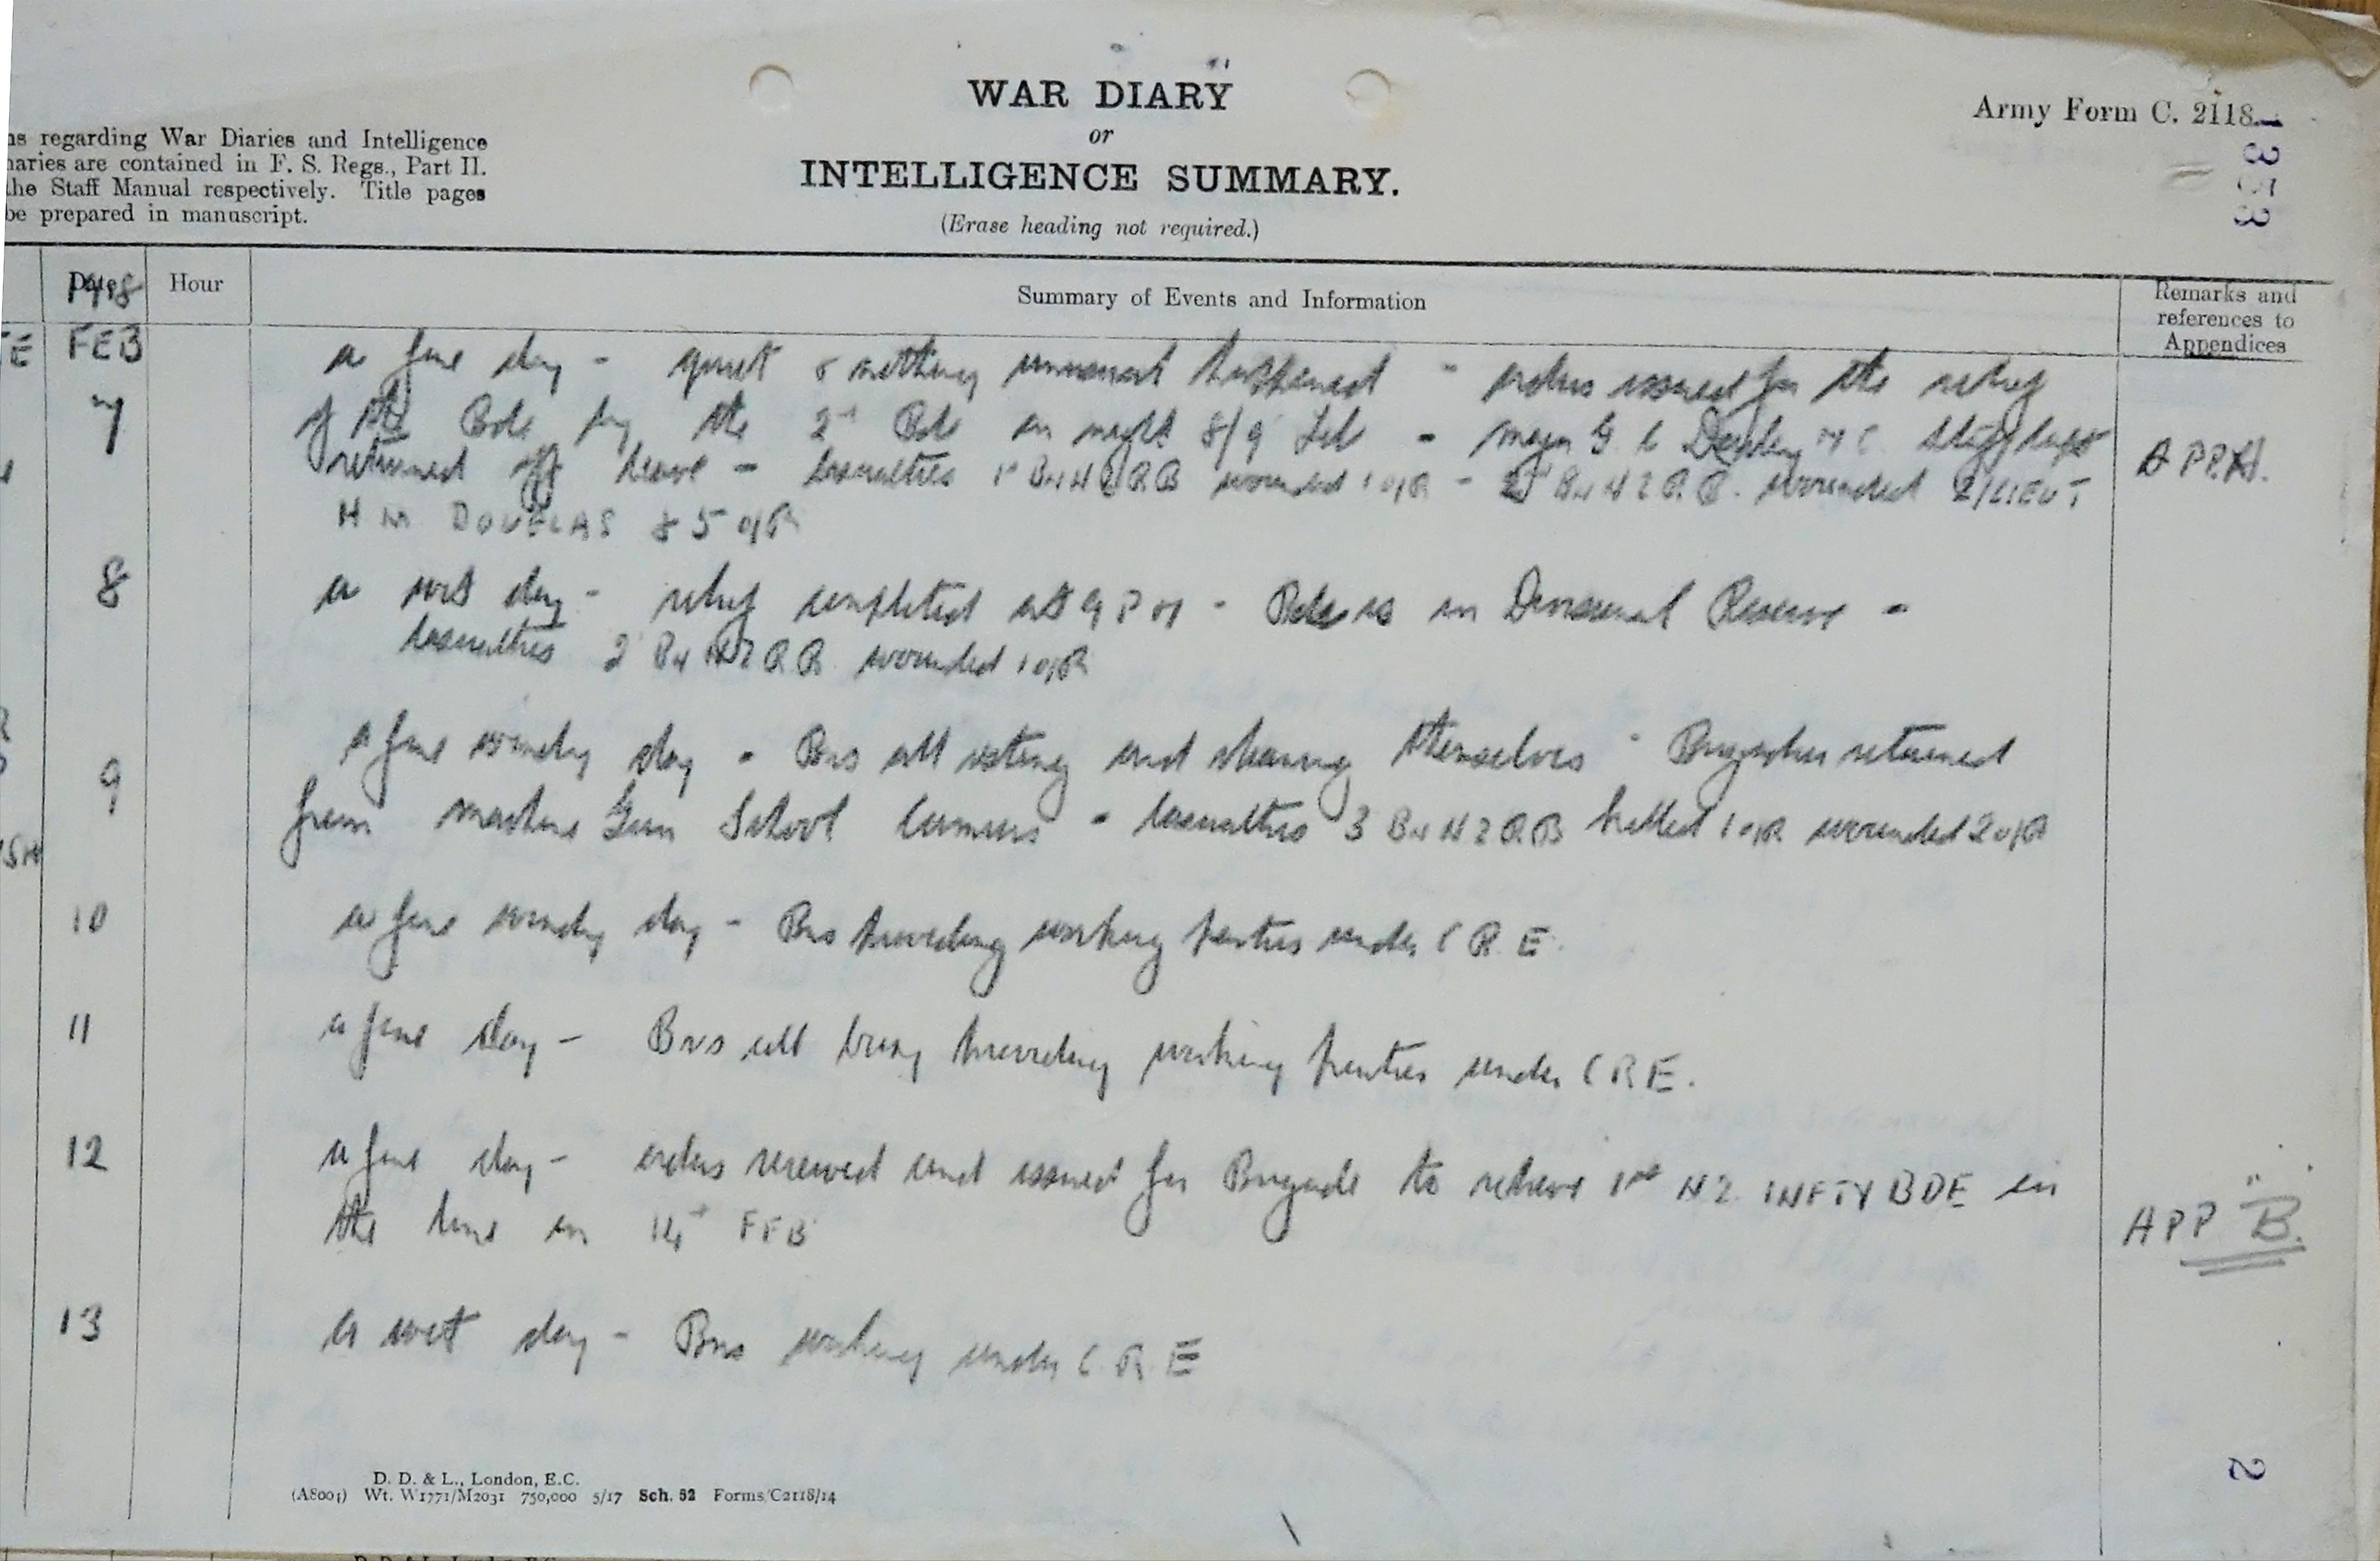 WAR DIARY
or
INTELLIGENCE SUMMARY.
(Erase heading not required.)
Army Form C. 2118.
ns regarding War Diaries and Intelligence
naries are contained in F. S. Regs., Part II.
the Staff Manual respectively. Title pages
be prepared in manuscript.
Date 1918 Hour Summary of Events and Information Remarks and
references to
Appendices
TE FEB
7 a fine day - quiet & nothing unusual happened - orders issued for the relief
of the Bde by the 2nd Bde on night 8/9 Feb - Major G C MC Staff Capt
returned off leave - casualties 1st Bn NZRB wounded 1 O/R - 2nd Bn NZRB. wounded 2/LIEUT APP. A.
H M DOUGLAS & 5 O/R
8 a wet day - relief completed at 9 PM - Bde is in Divisional Reserve -
casualties 2 Bn NZRB wounded 1 O/R
9 a fine windy day - Bns all resting and cleaning themselves - Brigadier returned
from Machine Gun School Camiers - casualties 3 Bn NZRB killed 1 O/R wounded 2 O/R
10 a fine windy day - Bns providing working parties under C R E.
11 a fine day - Bns all busy providing working parties under C R E.
12 a fine day - orders received and issued for Brigade to relieve 1st NZ INFTY BDE in
the line on 14th FEB APP "B".
13 a wet day - Bns working under C. R E
2
D. D. & L., London, E.C.
(A8004) Wt. W1771/M2031 750,000 5/17 Sch. 52 Forms/C2118/14